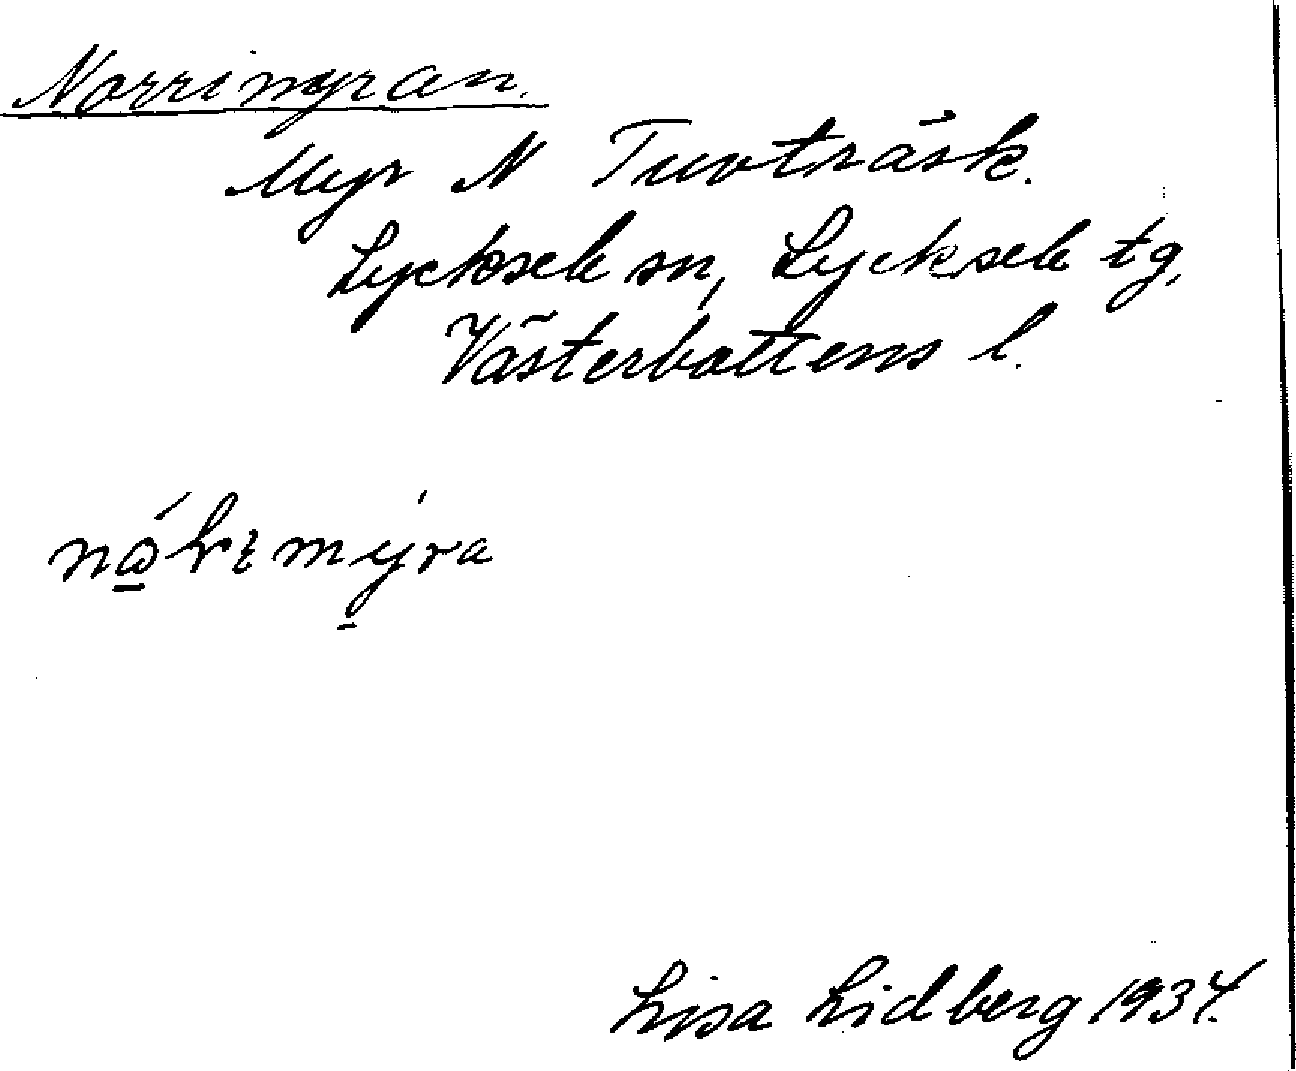 Norrimyran.
Myr N Tuvträsk.
Lycksele sn, Lycksele tg,
Västerbottens l.
Lisa Lidberg 1934.